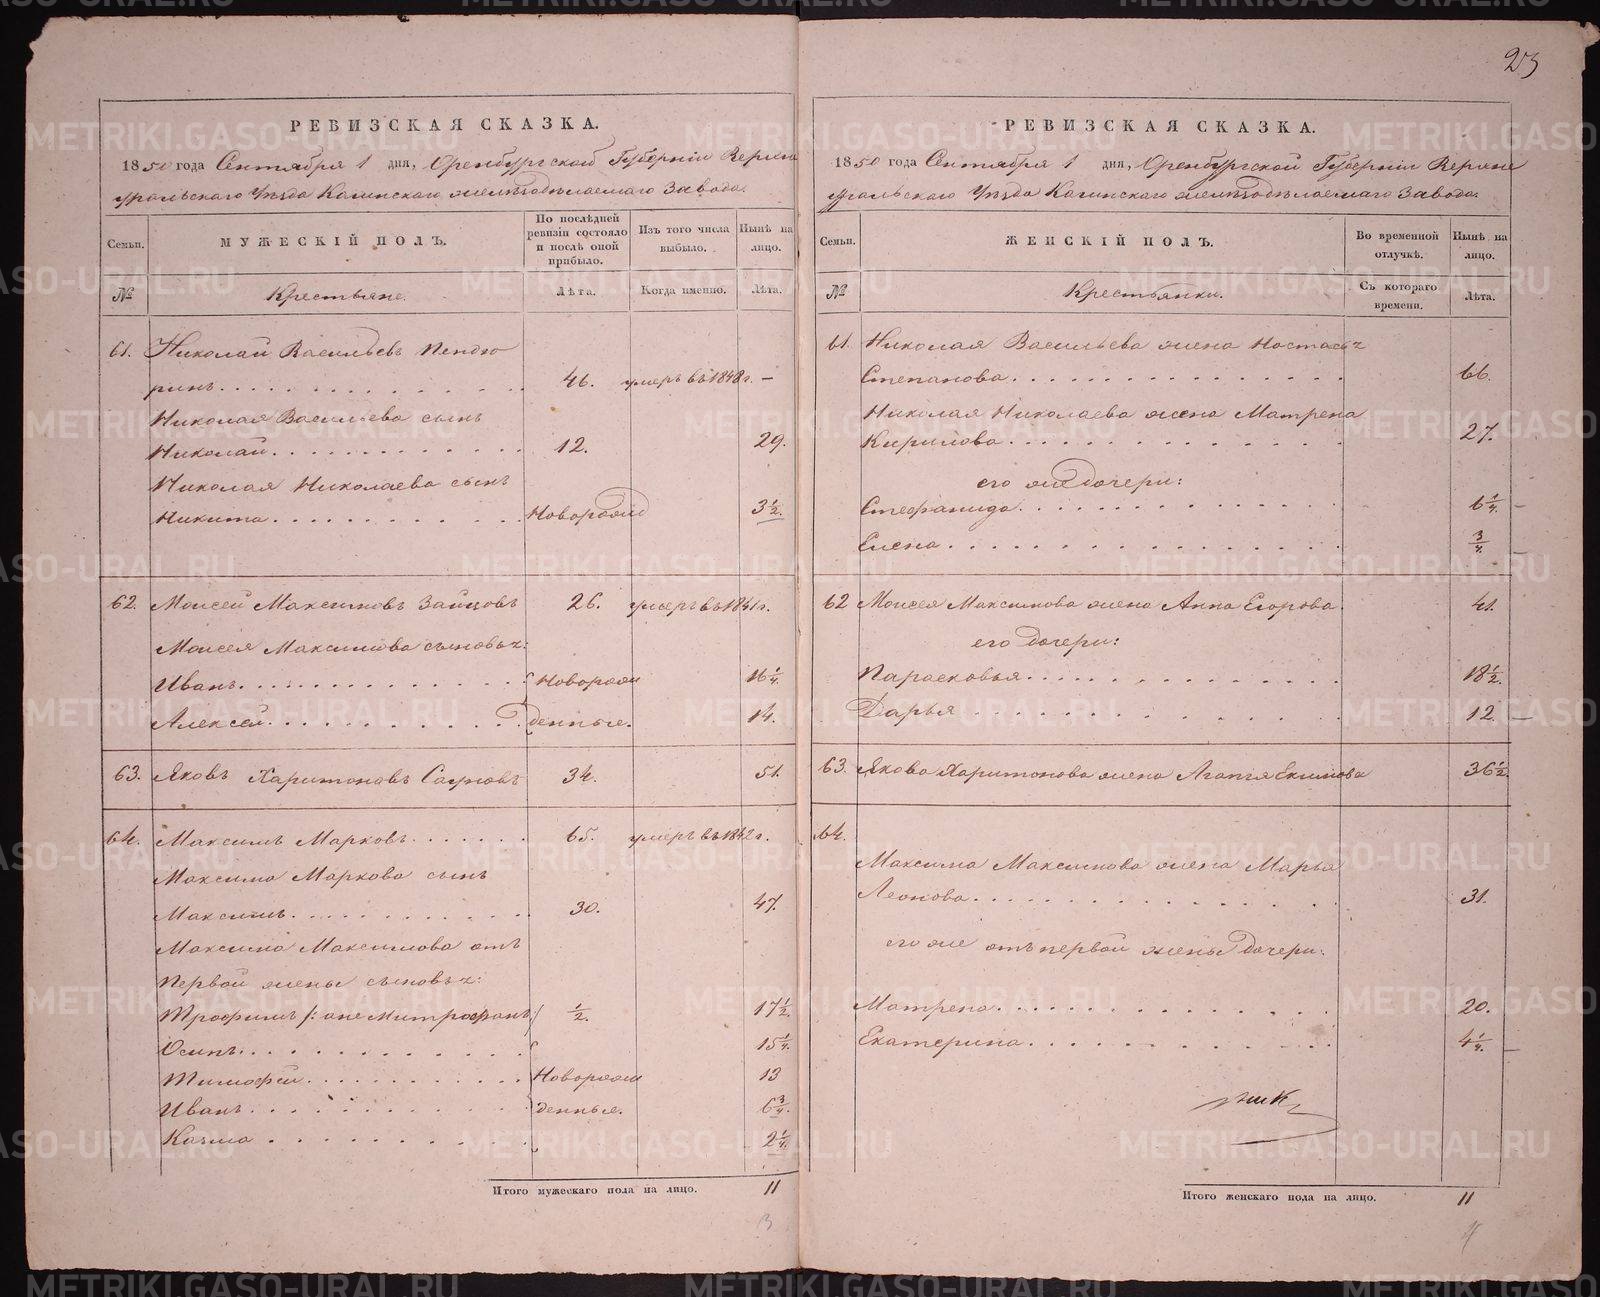 23
РЕВИЗСКАЯ СКАЗКА.
1850 года Сентября 1 дня, Оренбургской Губерніи Верхне
уральского Уѣзда Кагинскаго желѣзодѣлаемаго Завода.
Семьи.
МУЖЕСКІЙ ПОЛЪ.
По послѣдней
ревизіи состояло
и послѣ оной
прибыло.
Изъ того числа
выбыло.
Нынѣ на
лицо.
№
Крестьяне.
Лѣта.
Когда именно.
Лѣта.
61. Николай Васильевъ Пендю
ринъ 46. умеръ въ 1848 г. —
Николая Васильева сынъ
Николай 12. 29.
Николая Николаева сынъ
Никита Новорожд 3 1/2.
62. Моисей Максимовъ Зайцовъ 26. умеръ въ 1841 г.
Моисея Максимова сыновья:
Иванъ Новорож 16 1/4
Алексей денные. 14.
63. Яковъ Харитоновъ 34. 51.
64. Максимъ Марковъ 65. умеръ въ 1842 г.
Максима Маркова сынъ
Максимъ 30. 47.
Максима Максимова отъ
первой жены сыновья:
Трофимъ /: онже Митрофанъ :/ 1/2. 17 1/2.
Осипъ 15 1/4.
Тимофей Новорож 13
Иванъ денные. 6 3/4.
Козма 2 1/4.
Итого мужескаго пола на лицо. 11
3
РЕВИЗСКАЯ СКАЗКА.
1850 года Сентября 1 дня, Оренбургской Губерніи Верхне
уральскаго Уѣзда Кагинскаго желѣзодѣлаемаго Завода.
Семьи.
ЖЕНСКІЙ ПОЛЪ.
Во временной
отлучкѣ.
Нынѣ на
лицо.
№
Крестьянки.
Съ котораго
времени.
Лѣта.
61. Николая Васильева жена Настасья
Степанова 66.
Николая Николаева жена Матрена
Кирилова 27.
его же дочери:
Стефанида 6 1/4.
Елена 3/4.
62 Моисея Максимова жена Анна Егорова 41.
его дочери:
Парасковья 18 1/2.
Дарья 12.
63. Якова Харитонова жена Агапія Екимова 36 1/2
64.
Максима Максимова жена Марья
Леонова 31.
его же отъ первой жены дочери:
Матрена 20.
Екатерина 4 1/4.
Итого женскаго пола на лицо. 11
4
METRIKI.GASO-URAL.RU